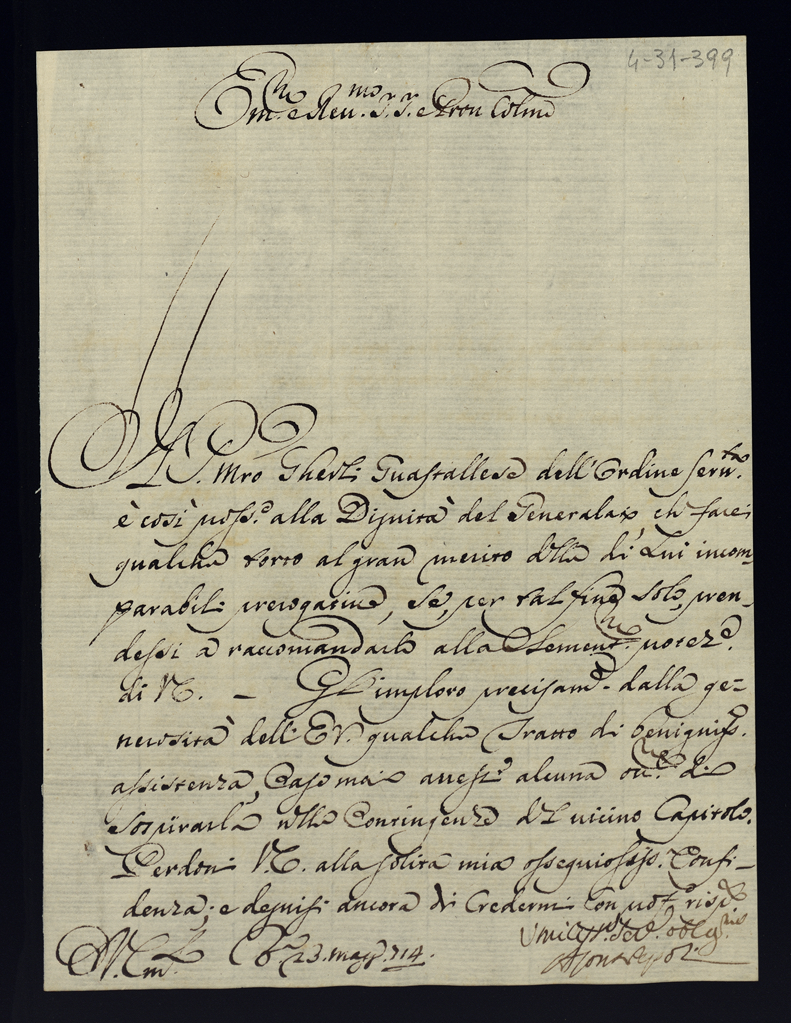 4-31-399
Em.ᵐᵒ e Reu.ᵐᵒ S. S. e Pron Colmo
Il P. Mro Gherli Guastallese dell'Ordine Seru.
è così uoss.° alla Dignità del Generalato, ch' farei
qualche torto al gran merito delle di Lui incom-
parabili prerogatiue, se, per tal fine solo, pren-
dessi a raccomandarlo alla
di V.E. – Gl' imploro precisam.e dalla ge-
nerosità dell' E.V. qualche Tratto di benigniss.
assistenza, Caso mai auesse alcuna occ.ne di
sospirarla nelle Contingenze del uicino Capitolo.
Perdoni V.E. alla solita mia ossequiosiss. Confi-
denza; e degnisi ancora di Credermi Con
Di V. Em. 23. magg. 714.
Vmiliss. Deu. obblig.